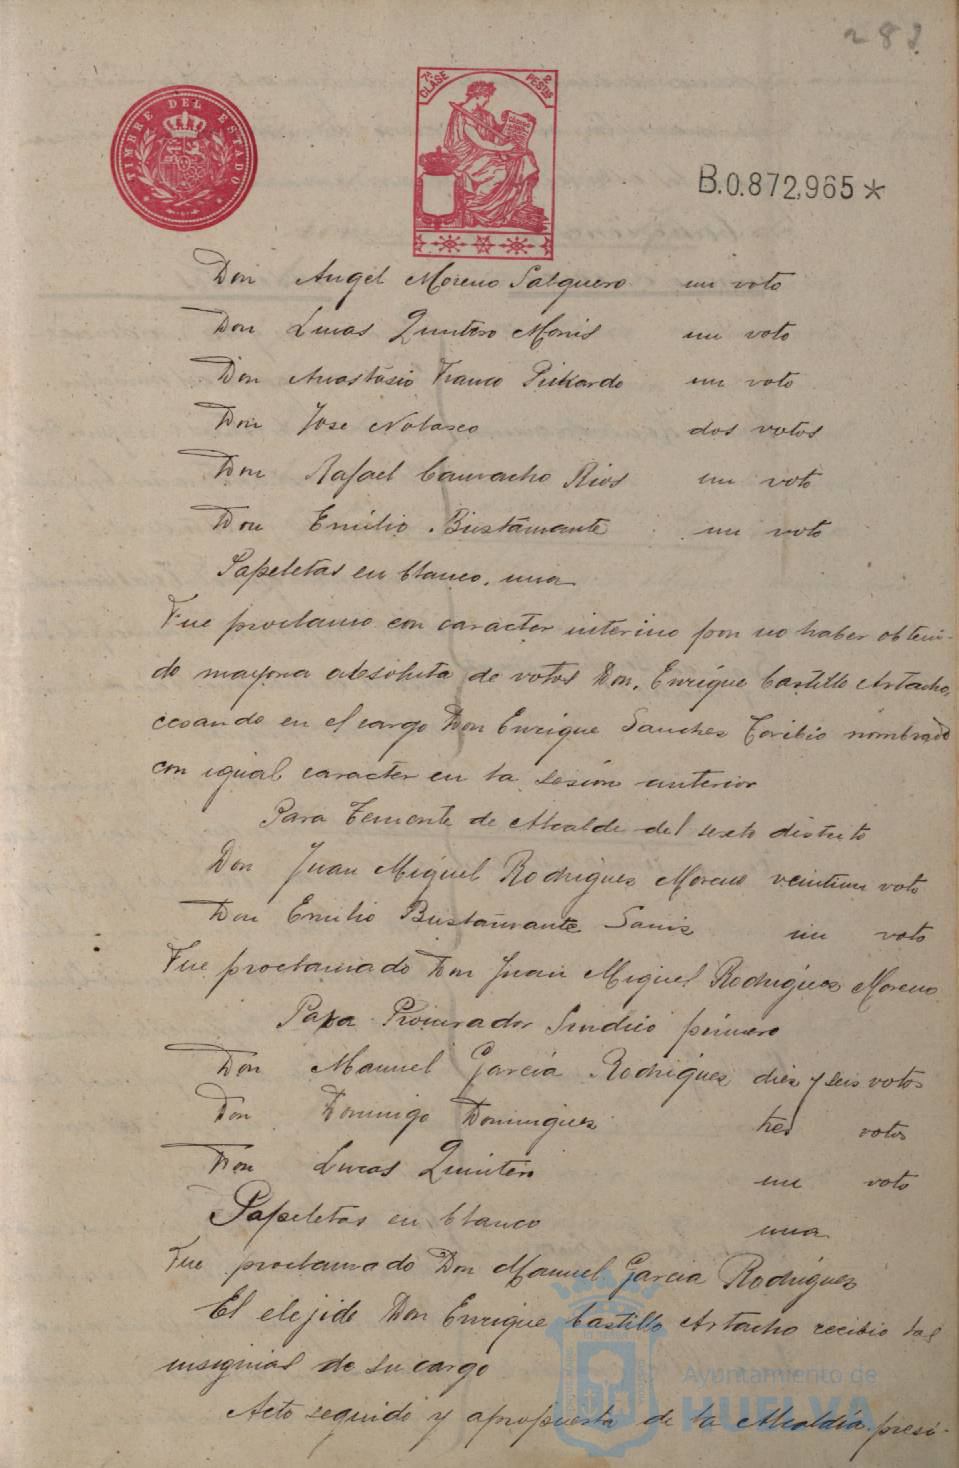 283
TIMBRE DEL ESTADO
7ª CLASE 2 PESTAS
B.0.872,965*
Don Angel Moreno Salguero un voto
Don Lucas Quintero Monis un voto
Don Anastasio Franco Pickardo un voto
Don Jose Nolasco dos votos
Don Rafael Camacho Rios un voto
Don Emilio Bustamante un voto
Papeletas en blanco, una
Fue proclamo con caracter interino por no haber obteni-
do mayoria absoluta de votos Don Enrique Castillo Artacho,
cesando en el cargo Don Enrique Sanchez Toribio nombrado
con igual caracter en la sesión anterior
Para Teniente de Alcalde del sexto distrito
Don Juan Miguel Rodriguez Moreno veintiun voto
Don Emilio Bustamante un voto
Fue proclamado Don Juan Miguel Rodriguez Moreno
Para Procurador Sindico primero
Don Manuel Garcia Rodriguez diez y seis votos
Don Domingo Dominguez tres votos
Don Lucas Quintero un voto
Papeletas en blanco una
Fue proclamado Don Manuel Garcia Rodriguez
El elejido Don Enrique Castillo Artacho recibio las
insignias de su cargo
Acto seguido y apropuesta de la Alcaldia presi-
Ayuntamiento de
HUELVA